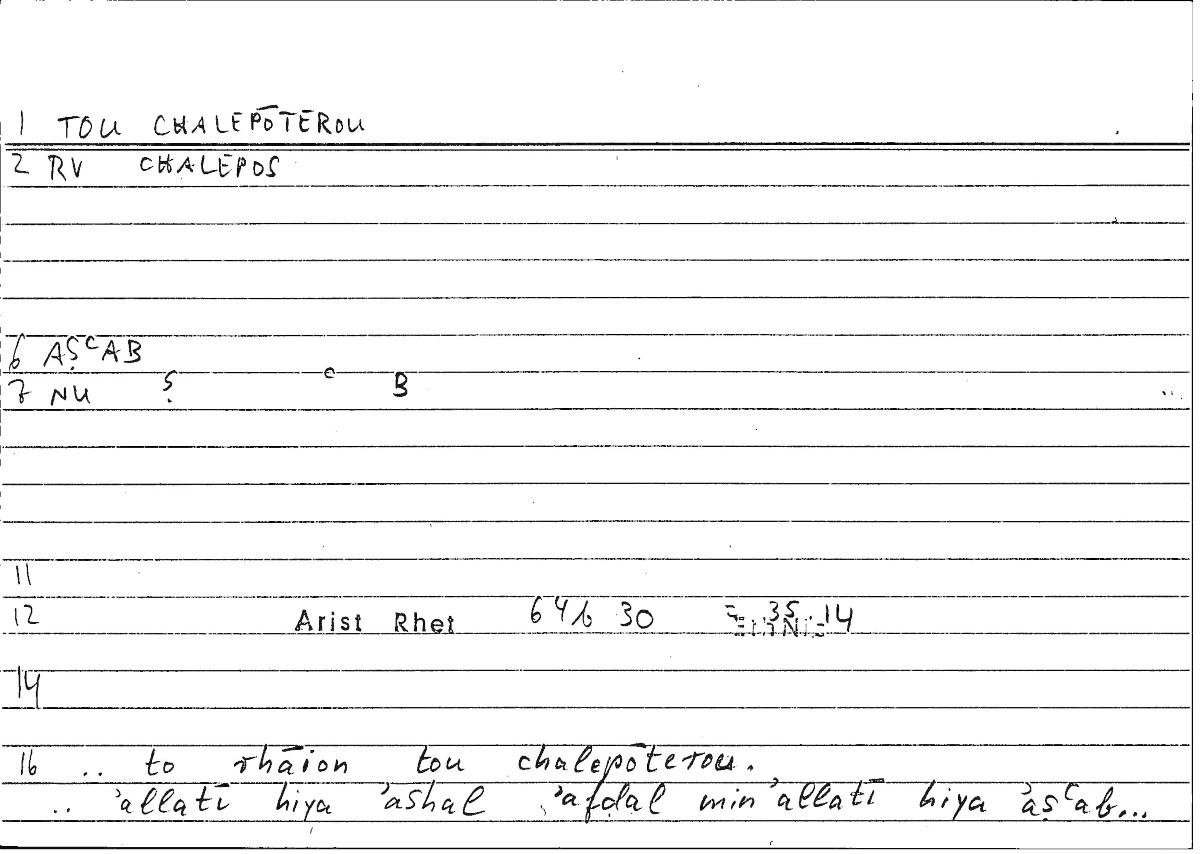 1 TOU CHALEPŌTEROU
2 RV CHALEPOS
6 AṢʿAB
7 NU Ṣ ʿ B
11
12 Arist Rhet 64b 30 35 14
14
16 .. to rhāion tou chalepōterou.
.. ʾallatī hiya ʾashal ʾafḍal min ʾallatī hiya ʾaṣʿab...